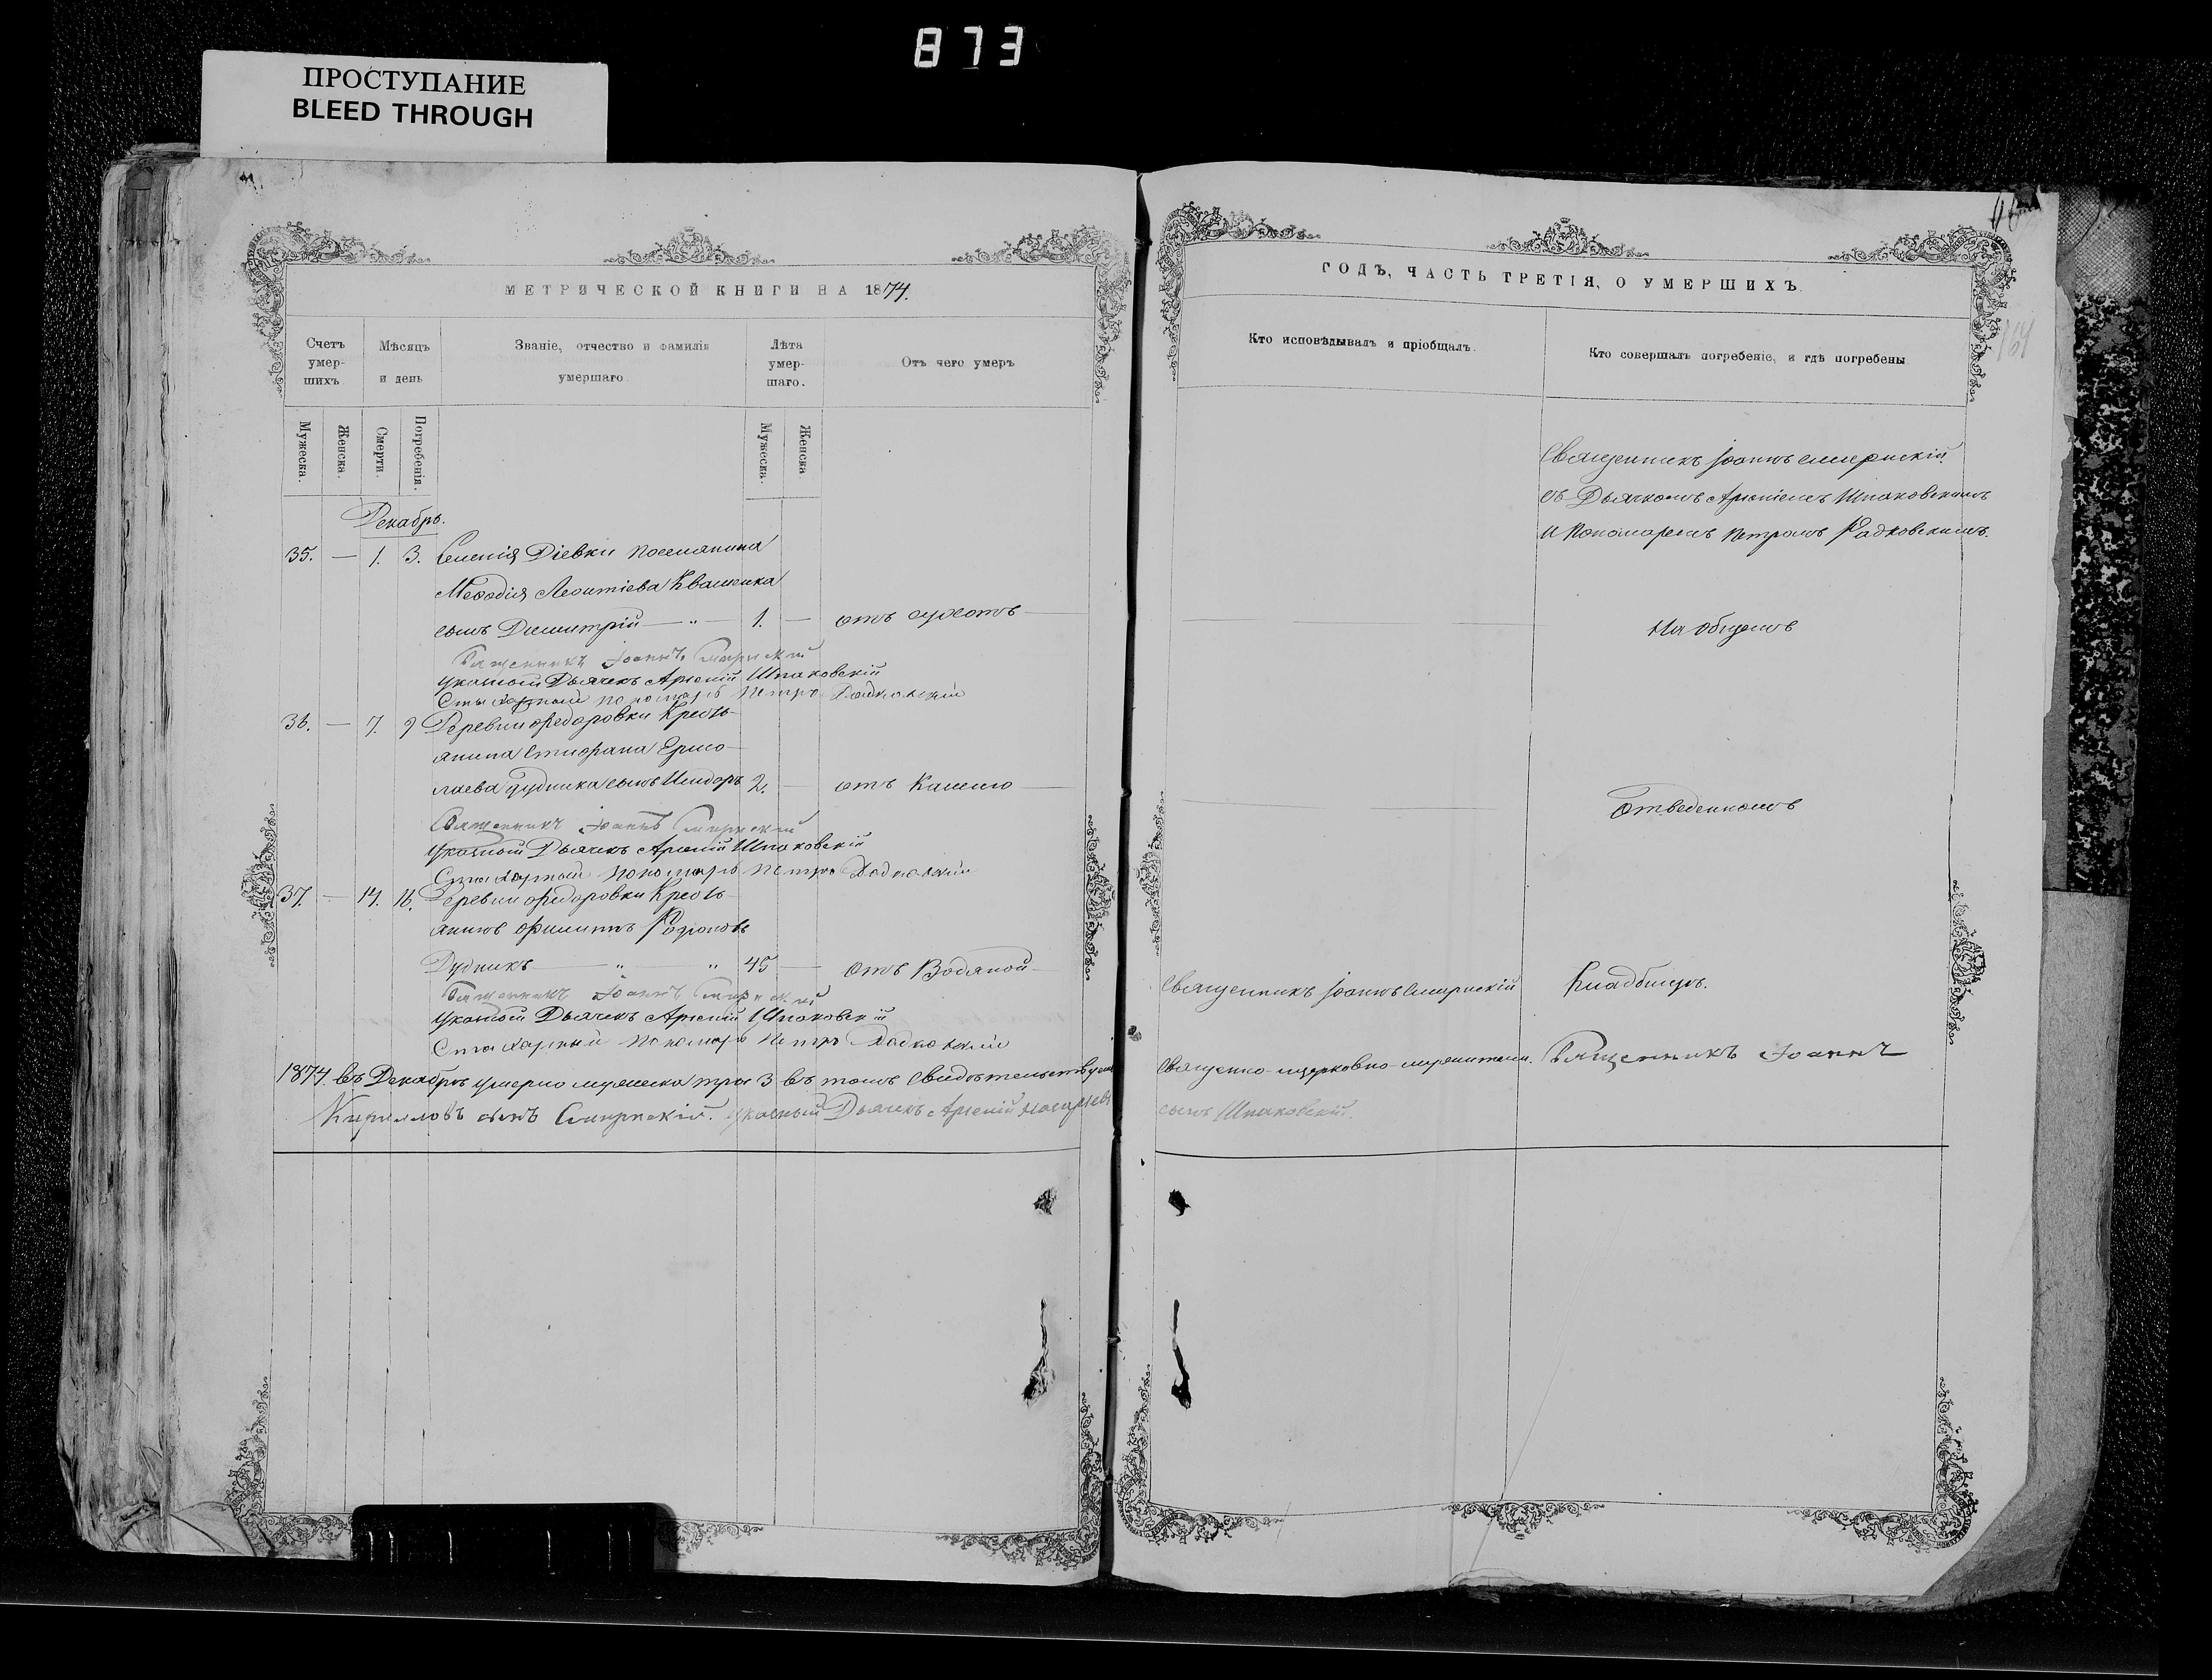 873
ПРОСТУПАНИЕ
BLEED THROUGH
МЕТРИЧЕСКОЙ КНИГИ НА 1874.
Счетъ умер-шихъ
Мѣсяцъ и день
Званіе, отчество и фамилія умершаго
Лѣта умер-шаго.
Отъ чего умеръ
Мужеска.
Женска.
Смерти.
Погребенія.
Мужеска.
Женска.
Декабрь.
35. — 1. 3. Селенія Діевки поселянина
Меѳодія Леонтіева Квашенка
сынъ Димитрій — " — 1. — отъ сухотъ
Священникъ Іоаннъ Смирнскій
Указный Дьячекъ Арсеній Шпаковскій
Стихарный пономарь Петръ Радковскій
36. — 7. 9 Деревни Федоровки Кресть-
янина Стефана Ермо-
лаева Дудника сынъ Исидоръ 2. — отъ Кашлю
Священникъ Іоаннъ Смирнскій
Указный Дьячекъ Арсеній Шпаковскій
Стихарный пономарь Петръ Радковскій
37. — 14. 16. Деревни Федоровки Кресть-
янинъ Филиппъ Родіоновъ
Дудникъ — " — " 45 — Отъ Водяной
Священникъ Іоаннъ Смирнскій
Указный Дьячекъ Арсеній Шпаковскій
Стихарный пономарь Петръ Радковскій
1874 въ Декабрѣ умерло мужеска три 3 въ томъ свидѣтельствуемъ
Кирилловъ сынъ Смирнскій. Указный Дьячекъ Арсеній
ГОДЪ, ЧАСТЬ ТРЕТІЯ, О УМЕРШИХЪ
Кто исповѣдывалъ и пріобщалъ.
Кто совершалъ погребеніе, и гдѣ погребены
Священникъ Іоаннъ Смирнскій
съ Дьячкомъ Арсеніемъ Шпаковскимъ
и Пономаремъ Петромъ Радковскимъ.
На общемъ
Отведенномъ
Священникъ Іоаннъ Смирнскій
Кладбищѣ.
Священно-церковно-служители. Священникъ Іоаннъ
сынъ Шпаковскій.